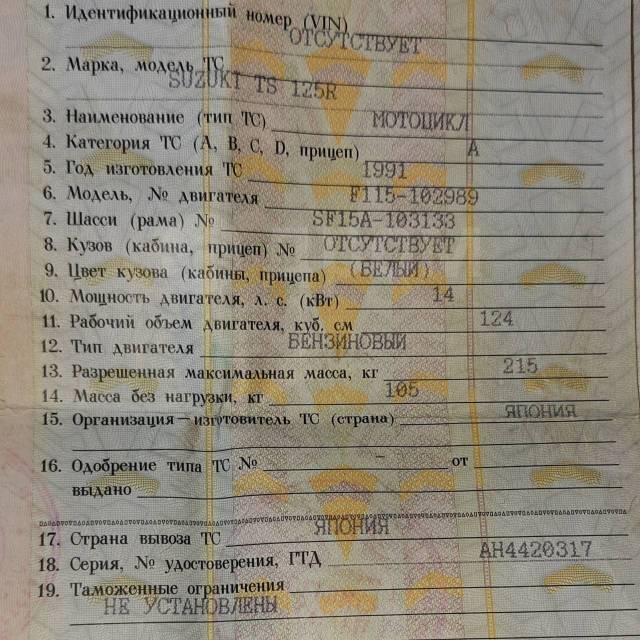 1. Идентификационный номер (VIN)
ОТСУТСТВУЕТ
2. Марка, модель ТС
SUZUKI TS 125R
3. Наименование (тип ТС) МОТОЦИКЛ
4. Категория ТС (А, В, С, D, прицеп) А
5. Год изготовления ТС 1991
6. Модель, № двигателя F115-102989
7. Шасси (рама) № SF15A-103133
8. Кузов (кабина, прицеп) № ОТСУТСТВУЕТ
9. Цвет кузова (кабины, прицепа) (БЕЛЫЙ)
10. Мощность двигателя, л. с. (кВт) 14
11. Рабочий объем двигателя, куб. см 124
12. Тип двигателя БЕНЗИНОВЫЙ
13. Разрешенная максимальная масса, кг 215
14. Масса без нагрузки, кг 105
15. Организация—изготовитель ТС (страна) ЯПОНИЯ
16. Одобрение типа ТС № – от
выдано
17. Страна вывоза ТС ЯПОНИЯ
18. Серия, № удостоверения, ГТД АН4420317
19. Таможенные ограничения
НЕ УСТАНОВЛЕНЫ